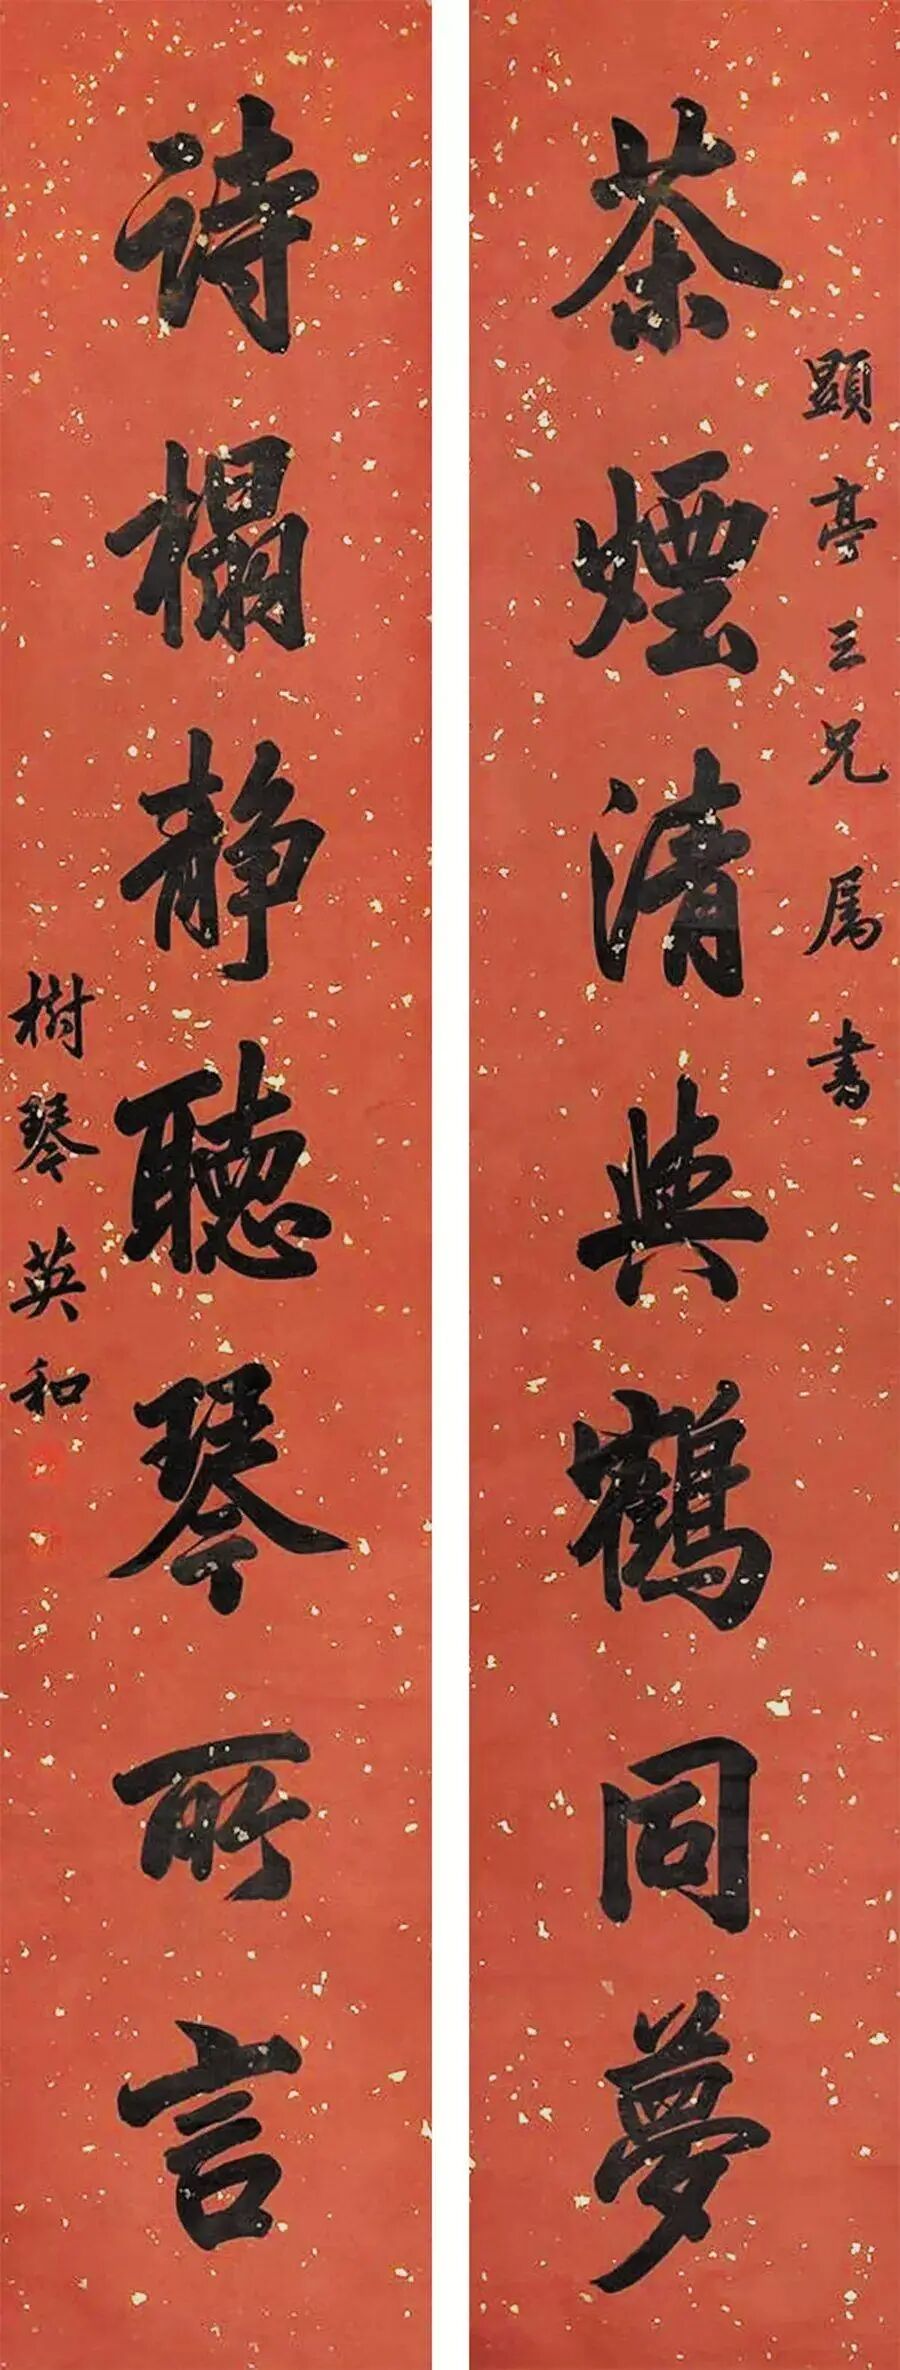 茶煙清與鶴同夢
顯亭三兄属書
诗榻静聽琴所言
樹琴英和